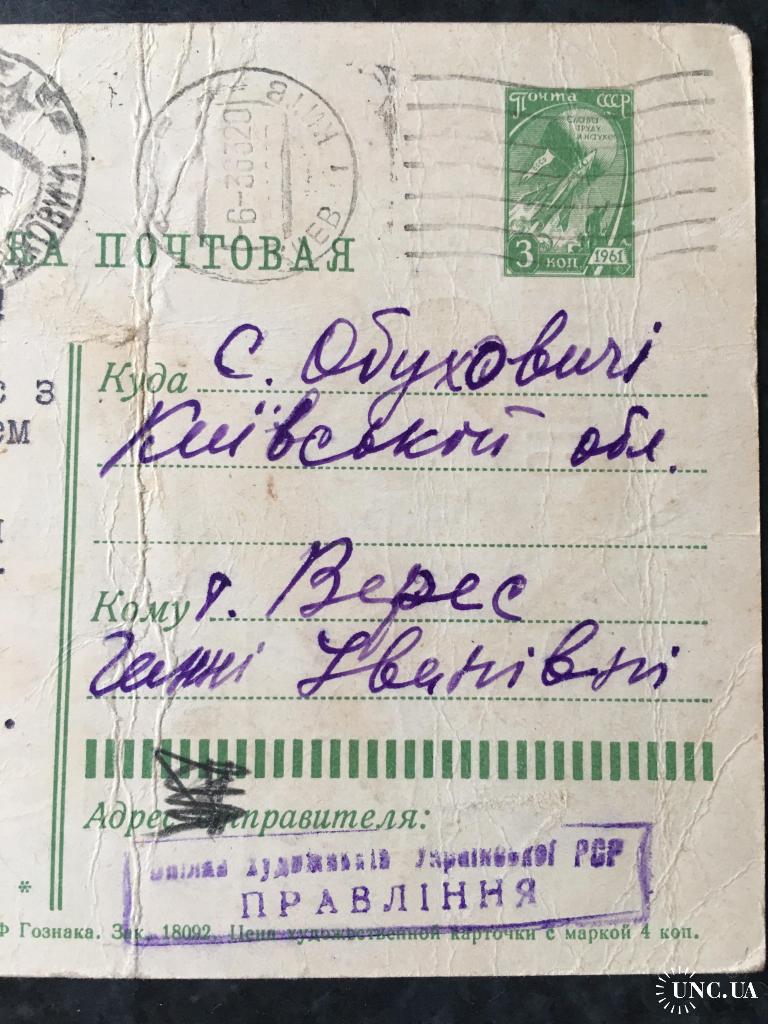 Почта СССР
СЛАВА
ТРУДУ
И НАУКЕ
3 коп 1961
КИЇВ
КИЕВ 1
-6-36320
ОВИЧИ
КА ПОЧТОВАЯ
є з
ем
Куда с. Обуховичі
Київської обл.
Кому т. Верес
Ганні Іванівні
Адрес отправителя:
Спілка художників Української РСР
ПРАВЛІННЯ
*
Ф Гознака. Зак. 18092. Цена художественной карточки с маркой 4 коп.
UNC.UA